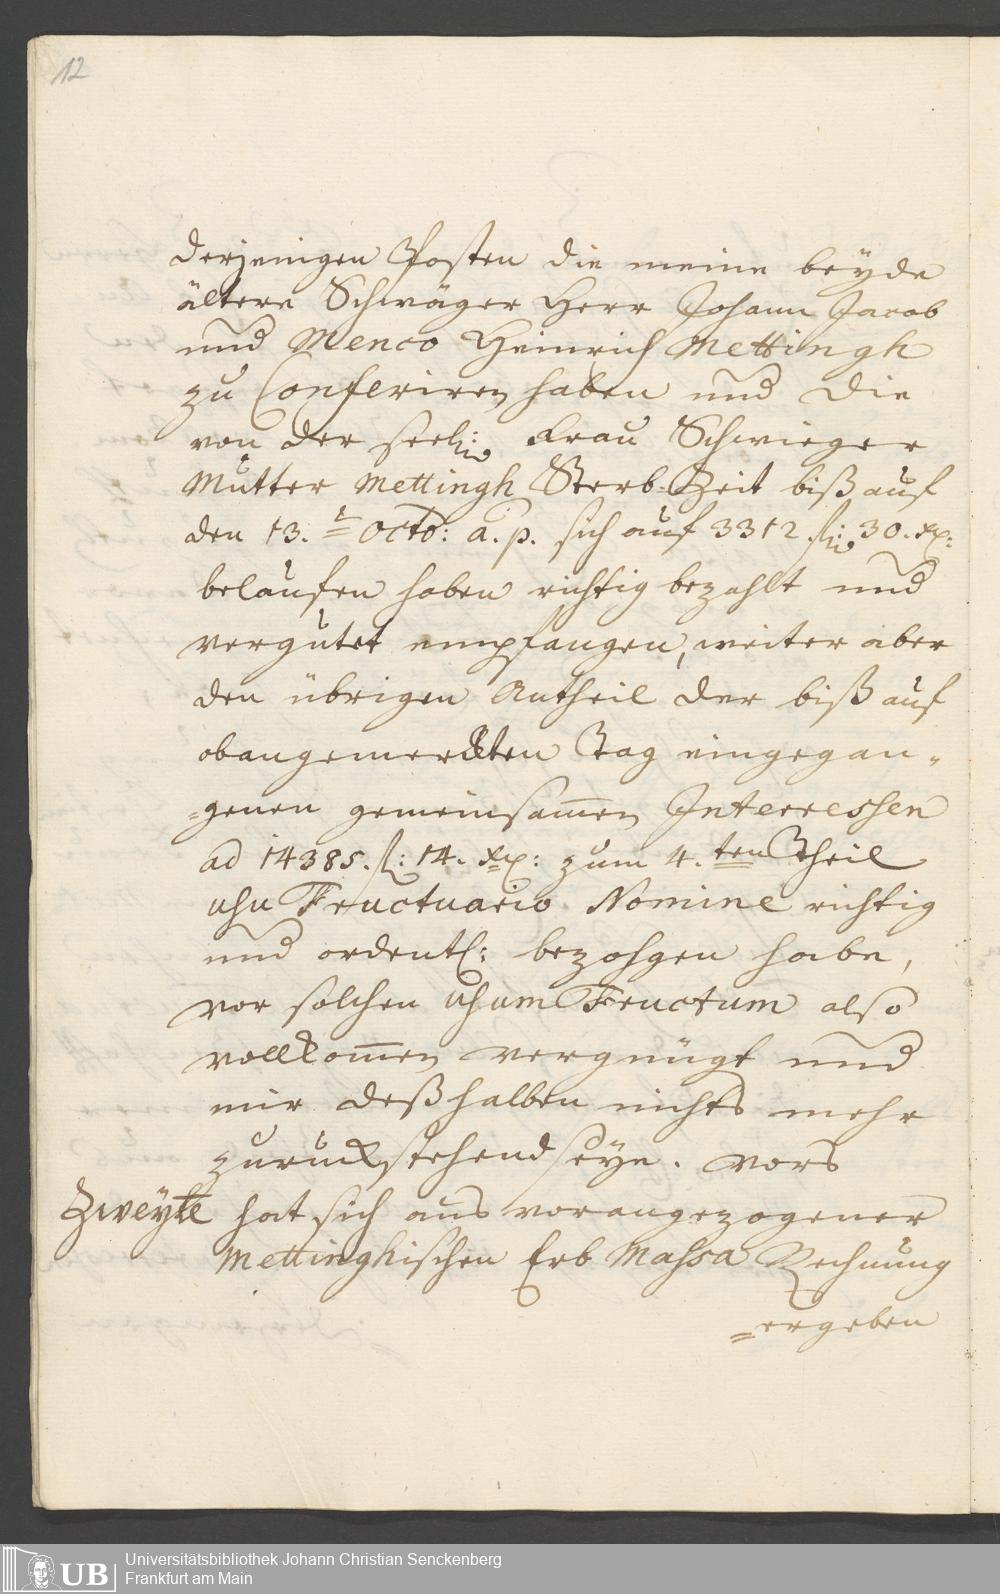 12
derjenigen Posten die meine beyde
ältere Schwäger Herr Johann Jacob
und Menco Heinrich Mettingh
zu Conferiren haben und die
von der seel: Frau Schwieger
Mutter Mettingh Sterb-Zeit biß auf
den 13. t Octo: a. p. sich auf 3312 f: 30. xr:
belaufen haben richtig bezahlt und
vergütet empfangen, weiter aber
den übrigen Antheil der biß auf
obangemerckten Tag eingegan-
=genen gemeinsamen Interressen
ad 14385. f: 14. xr: zum 4.ten Theil
usu Fructuario Nomine richtig
und ordentl: bezohgen habe,
vor solchen usum Fructum also
vollkommen vergnügt und
mir deßhalben nichts mehr
zurückstehend seye. Vors
Zweyte hat sich aus vorangezogener
Mettinghischen Erb Massa Rechnung
=ergeben
UB
Universitätsbibliothek Johann Christian Senckenberg
Frankfurt am Main